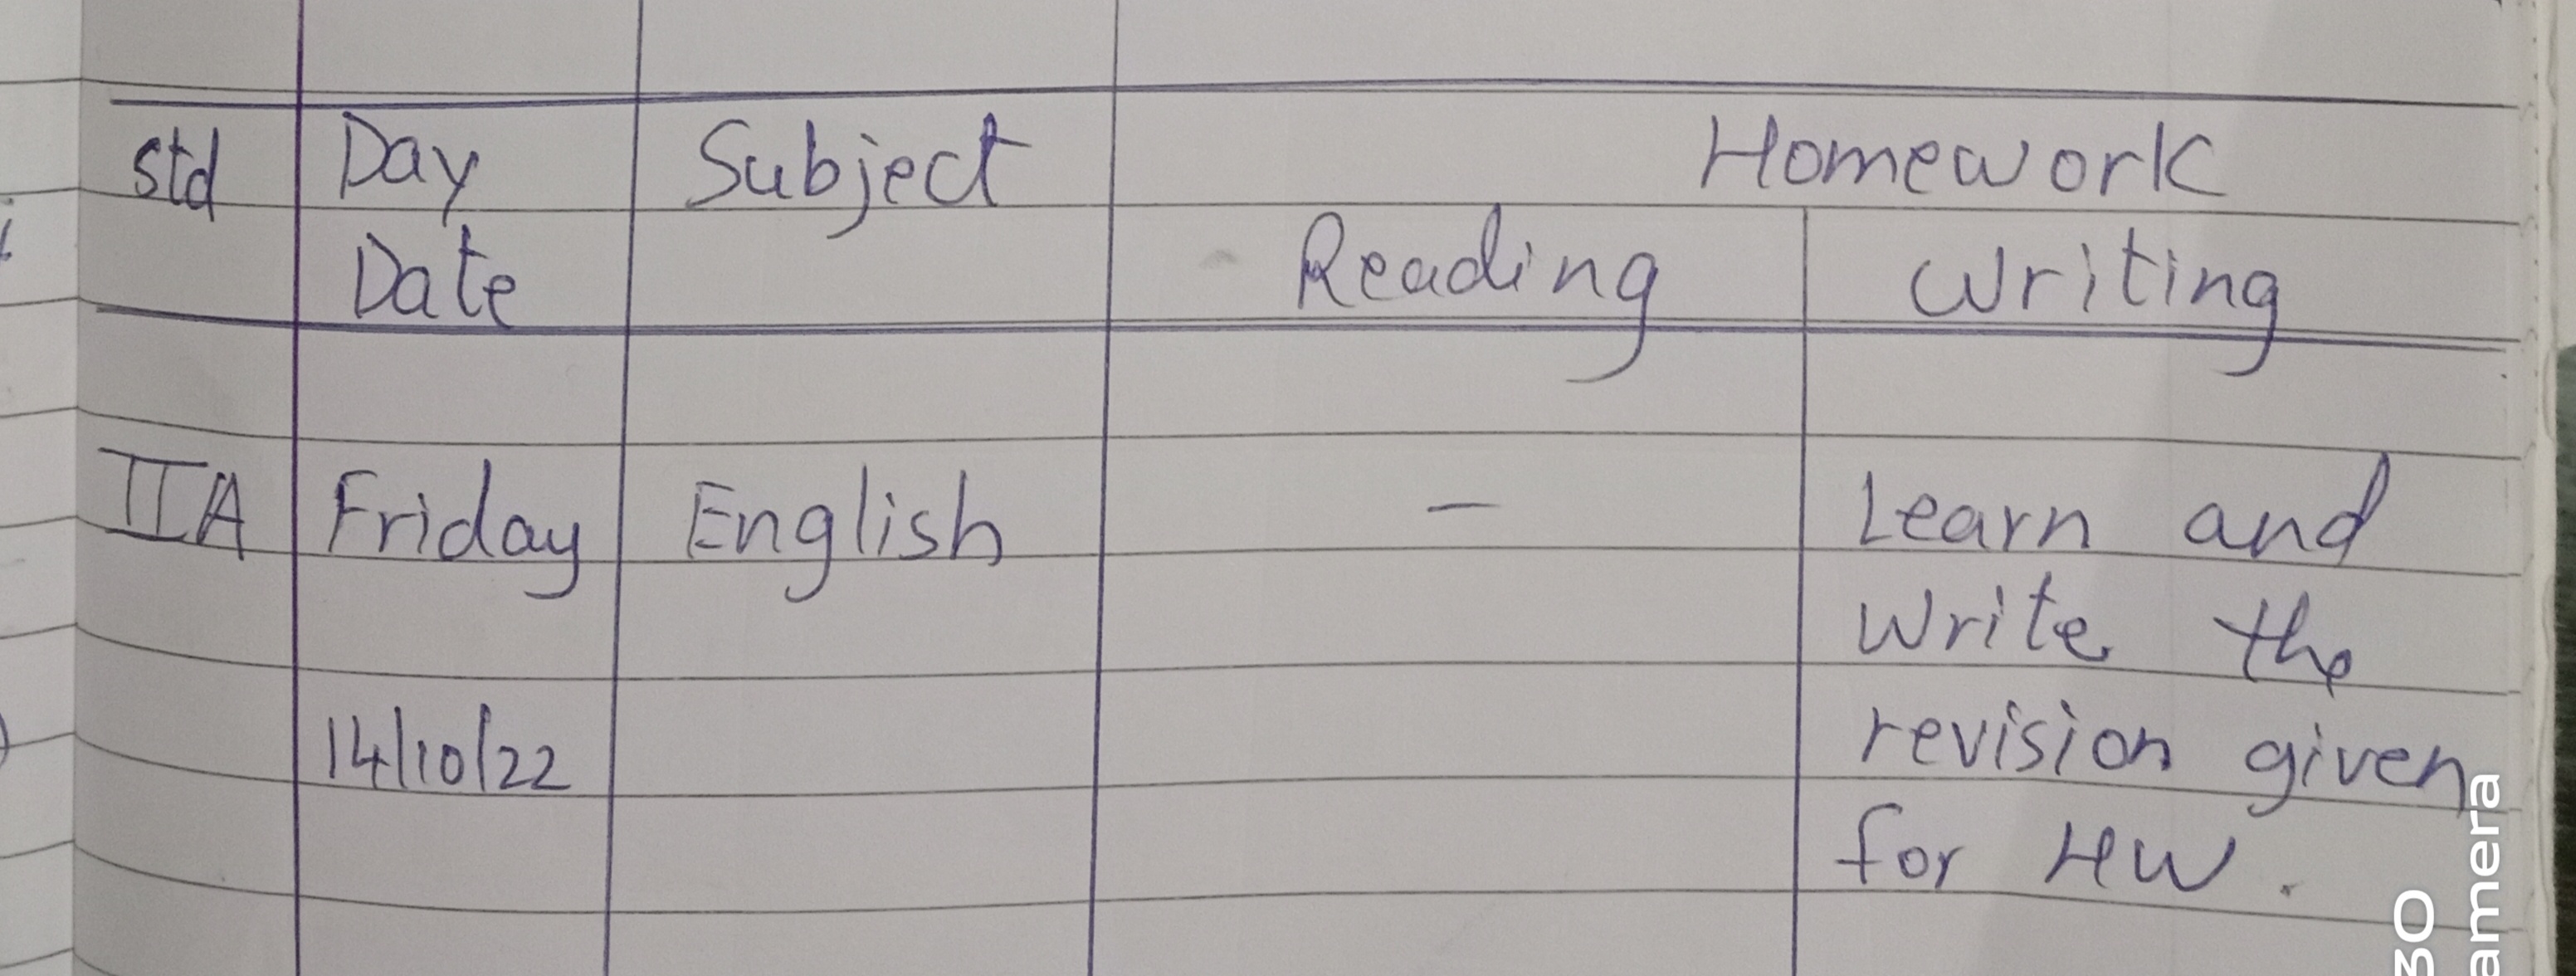 std Day Subject Homework
Date Reading Writing
IIA Friday English - Learn and
Write the
14/10/22 revision given
for HW.